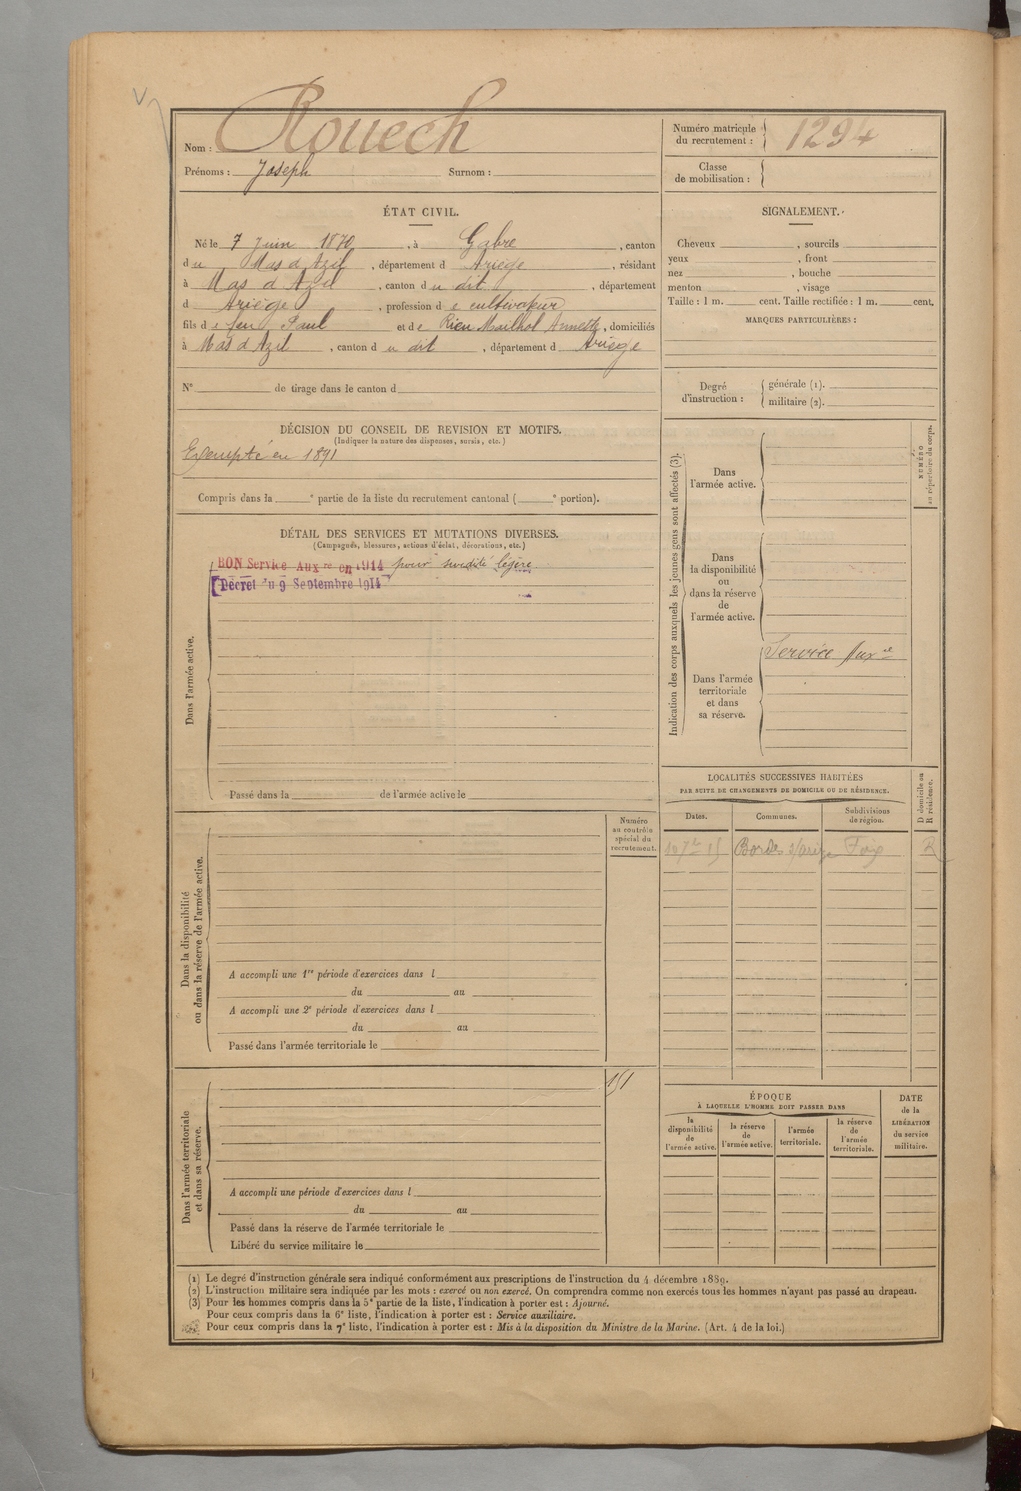 Nom : Rouech
Prénoms : Joseph Surnom :
Numéro matricule du recrutement : 1294
Classe de mobilisation :
ÉTAT CIVIL.
Né le 7 Juin 1870, à Gabre, canton
du Mas d'Azil, département d Ariège, résidant
à Mas d'Azil, canton du dit, département
d Ariège, profession de cultivateur
fils de feu Paul et de Rieu Mailhol Annette, domiciliés
à Mas d'Azil, canton du dit, département d Ariège
N° de tirage dans le canton d
DÉCISION DU CONSEIL DE REVISION ET MOTIFS.
(Indiquer la nature des dispenses, sursis, etc.)
Exempté en 1891
Compris dans la e partie de la liste du recrutement cantonal ( e portion).
SIGNALEMENT.
Cheveux , sourcils
yeux , front
nez , bouche
menton , visage
Taille : 1 m. cent. Taille rectifiée : 1 m. cent.
MARQUES PARTICULIÈRES :
Degré d'instruction : générale (1).
militaire (2).
DÉTAIL DES SERVICES ET MUTATIONS DIVERSES.
(Campagnes, blessures, actions d'éclat, décorations, etc.)
Dans l'armée active.
BON Service Auxre en 1914 pour surdité légère
Décret du 9 Septembre 1914
Passé dans la de l'armée active le
Indication des corps auxquels les jeunes gens sont affectés (3).
NUMÉRO au répertoire du corps.
Dans l'armée active.
Dans la disponibilité ou dans la réserve de l'armée active.
Dans l'armée territoriale et dans sa réserve.
Service Aux re
LOCALITÉS SUCCESSIVES HABITÉES
PAR SUITE DE CHANGEMENTS DE DOMICILE OU DE RÉSIDENCE.
D domicile ou R résidence.
Dates. Communes. Subdivisions de région.
15 Bordes s/arize Foix R
Numéro au contrôle spécial du recrutement.
Dans la disponibilité ou dans la réserve de l'armée active.
A accompli une 1re période d'exercices dans l
du au
A accompli une 2e période d'exercices dans l
du au
Passé dans l'armée territoriale le
151
Dans l'armée territoriale et dans sa réserve.
A accompli une période d'exercices dans l
du au
Passé dans la réserve de l'armée territoriale le
Libéré du service militaire le
ÉPOQUE
À LAQUELLE L'HOMME DOIT PASSER DANS
la disponibilité de l'armée active.
la réserve de l'armée active.
l'armée territoriale.
la réserve de l'armée territoriale.
DATE de la LIBÉRATION du service militaire.
(1) Le degré d'instruction générale sera indiqué conformément aux prescriptions de l'instruction du 4 décembre 1889.
(2) L'instruction militaire sera indiquée par les mots : exercé ou non exercé. On comprendra comme non exercés tous les hommes n'ayant pas passé au drapeau.
(3) Pour les hommes compris dans la 5e partie de la liste, l'indication à porter est : Ajourné.
Pour ceux compris dans la 6e liste, l'indication à porter est : Service auxiliaire.
Pour ceux compris dans la 7e liste, l'indication à porter est : Mis à la disposition du Ministre de la Marine. (Art. 4 de la loi.)